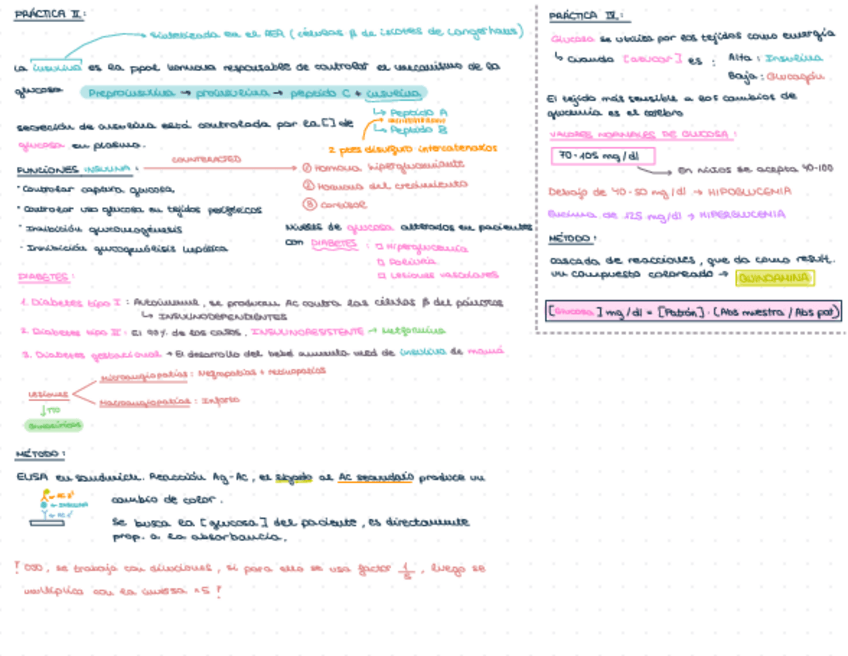 PRÁCTICA II:
sintetizada en el RER (células β de islotes de Langerhans)
La insulina es la ppal hormona responsable de controlar el mecanismo de la
glucosa
Preproinsulina → proinsulina → péptido C + insulina
↳ Péptido A
↳ Péptido B
2 ptes disulfuro intercatenarios
secreción de insulina está controlada por la [] de
glucosa en plasma.
FUNCIONES INSULINA:
COUNTERACTED
① Hormona hiperglucemiante
② Hormona del crecimiento
③ Cortisol
· Controlar captura glucosa,
· Controlar uso glucosa en tejidos periféricos
· Inhibición gluconeogénesis
· Inhibición glucogenólisis hepática
Niveles de glucosa alterados en pacientes
con DIABETES:
Hiperglucemia
Poliuria
Lesiones vasculares
DIABETES:
1. Diabetes tipo I: Autoinmune, se producen Ac contra las células β del páncreas
↳ INSULINODEPENDIENTES
2. Diabetes tipo II: El 90% de los casos. INSULINORESISTENTE → Metformina
3. Diabetes gestacional → El desarrollo del bebé aumenta need de insulina de mamá
LESIONES
Microangiopatías: Nefropatías + retinopatías
Macroangiopatías: Infarto
↓ TTO
MÉTODO:
ELISA en sandwich. Reacción Ag-Ac, el ligado al Ac secundario produce un
cambio de color.
← INSULINA
Se busca la [glucosa] del paciente, es directamente
prop. a la absorbancia.
! OJO, se trabaja con diluciones, si para ello se usa factor 1/5, luego se
multiplica con la inversa ×5 !
PRÁCTICA IV:
Glucosa se utiliza por los tejidos como energía
↳ cuando [azúcar] es: Alta: Insulina
Baja: Glucagón
El tejido más sensible a los cambios de
glucemia es el cerebro
VALORES NORMALES DE GLUCOSA:
70-105 mg/dl
→ En niños se acepta 40-100
Debajo de 40-50 mg/dl → HIPOGLUCEMIA
Encima de 125 mg/dl → HIPERGLUCEMIA
MÉTODO:
cascada de reacciones, que da como result.
un compuesto coloreado → QUINOAMINA
[Glucosa] mg/dl = [Patrón] · (Abs muestra / Abs pat)